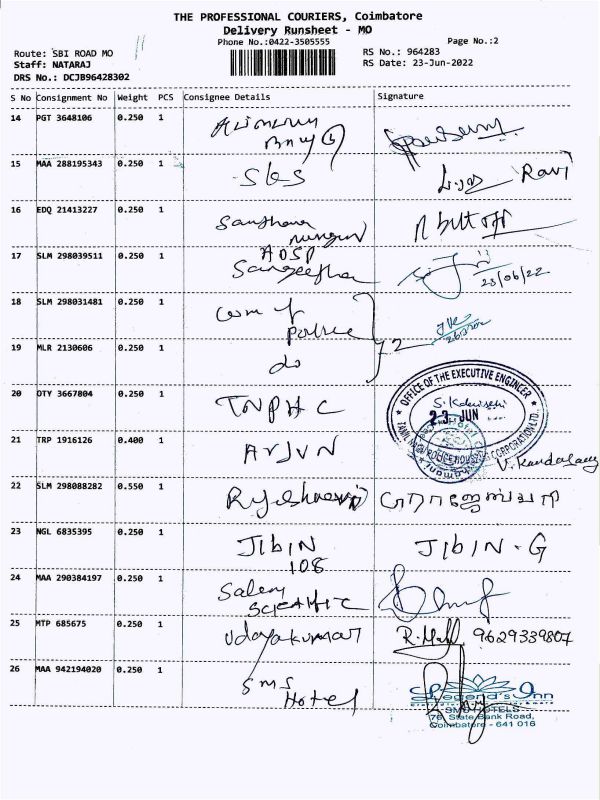 THE PROFESSIONAL COURIERS, Coimbatore
Delivery Runsheet - MO
Phone No.:0422-3505555
Page No.:2
Route: SBI ROAD MO
RS No.: 964283
Staff: NATARAJ
RS Date: 23-Jun-2022
DRS No.: DCJB96428302
S No Consignment No Weight PCS Consignee Details Signature
14 PGT 3648106 0.250 1
15 MAA 288195343 0.250 1 SBS Ravi
16 EDQ 21413227 0.250 1
17 SLM 298039511 0.250 1 ADSP
Sangeetha 23/06/22
18 SLM 298031481 0.250 1 Com of
police
19 MLR 2130606 0.250 1 do
OFFICE OF THE EXECUTIVE ENGINEER
23 JUN
20 OTY 3667804 0.250 1 TNPHC
21 TRP 1916126 0.400 1 ARJUN
22 SLM 298088282 0.550 1
23 NGL 6835395 0.250 1 JIBIN JIBIN-G
108
24 MAA 290384197 0.250 1 Salem
Scientific
25 MTP 685675 0.250 1 Udayakumar 9629339807
26 MAA 942194020 0.250 1 SMS
Hotel
Legend's Inn
SMS HOTELS
76, State Bank Road,
Coimbatore - 641 016